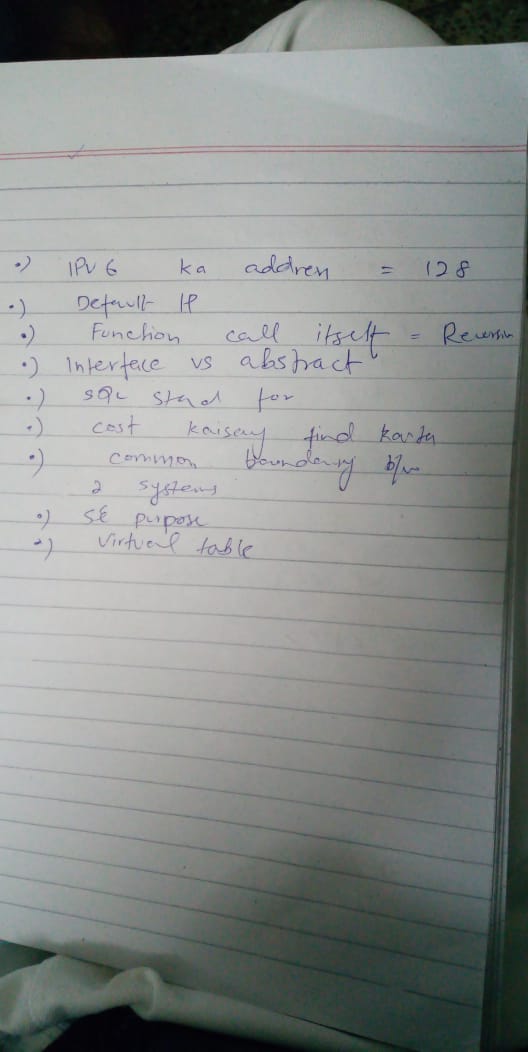 •) IPV 6 ka addren = 128
•) Default IP
•) Function call itself = Recursion
•) Interface vs abstract
•) SQL stad for
•) cost kaisay find karta
•) common boundary b/w
2 systems
•) SE purpose
•) Virtual table